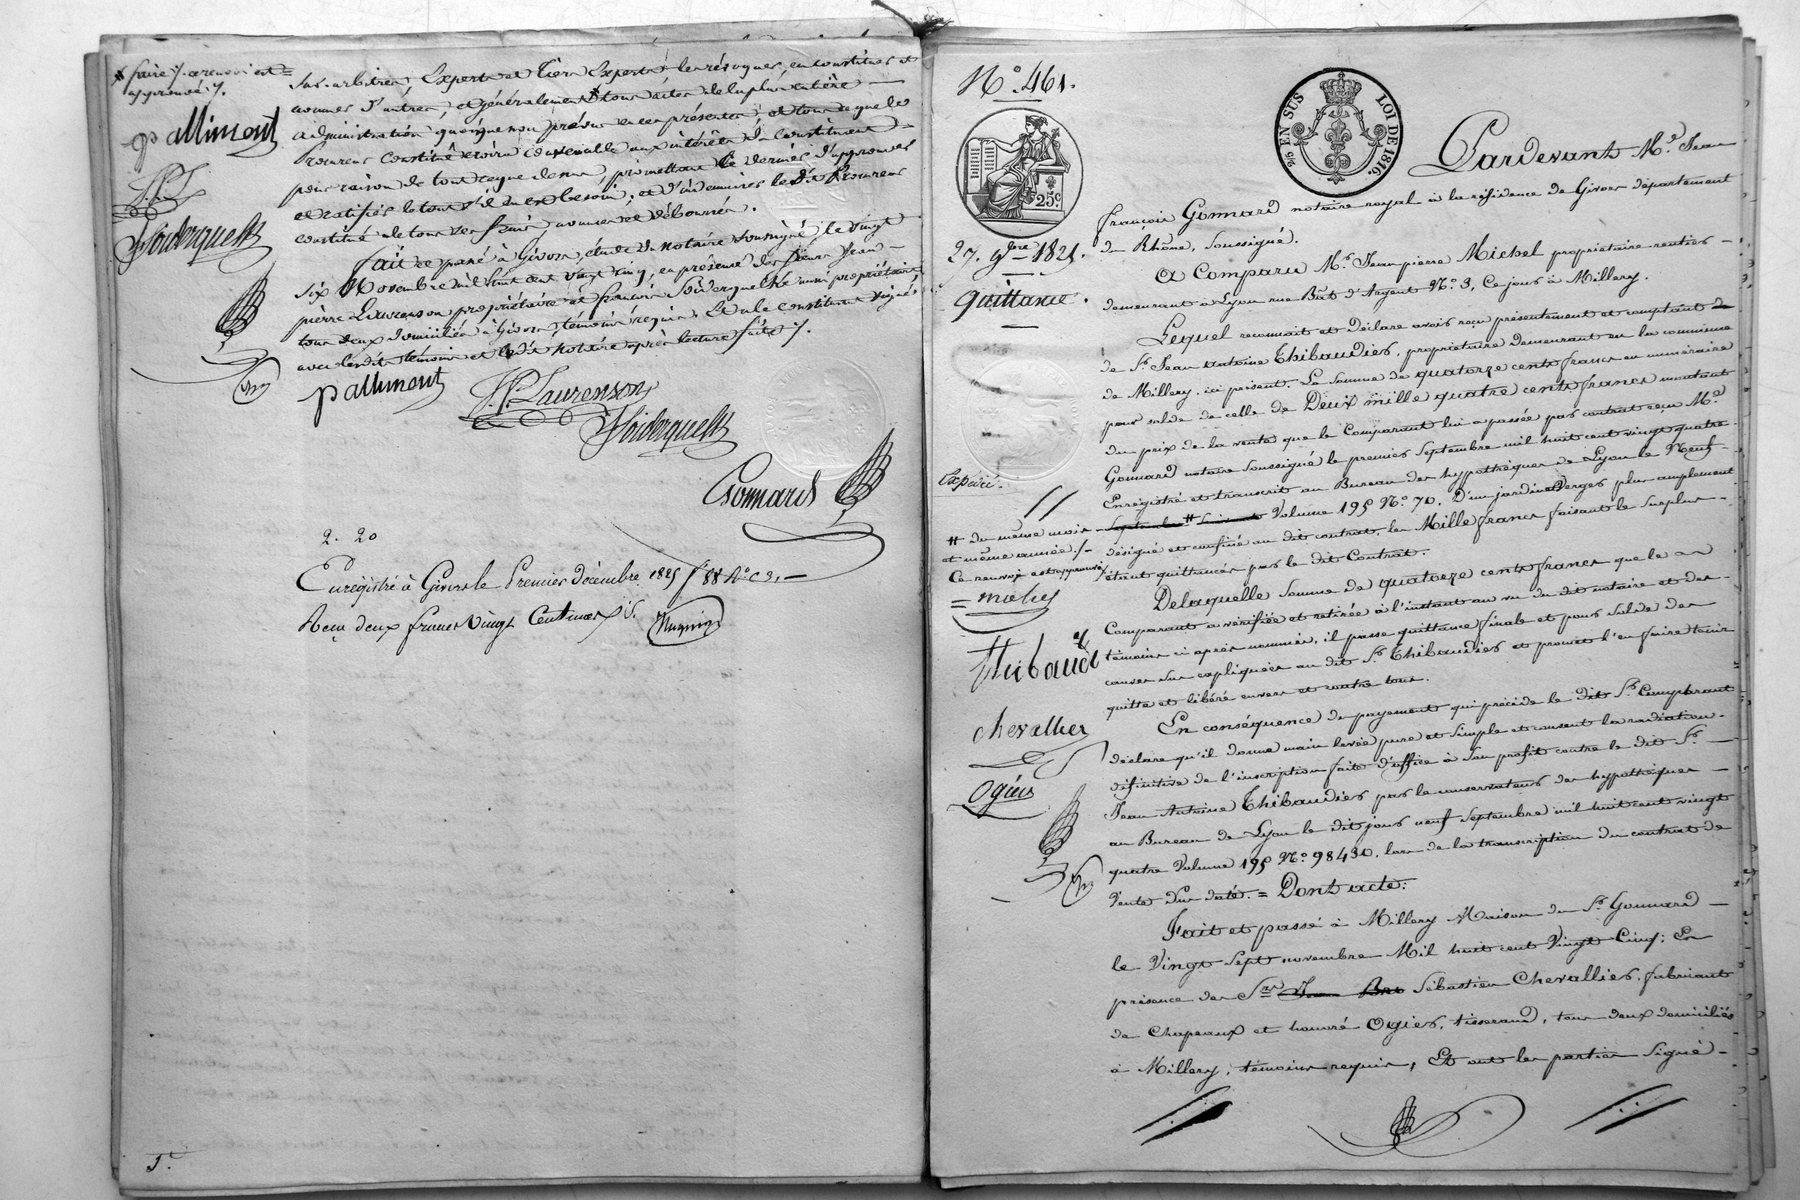 faire /. ce renvoi est
approuvé /.
pallimont
J.P.L
f Soiderquelk
Sur-arbitres, Experts et Tiers Experts les révoquer, en constituer et
nommer d'autres, et généralement tous actes de la plus entière
administration quoique non prévus en ces présentes, et tout ce que le
Procureur constitué croira convenable aux intérêts du Constituant
pour raison de tout ce que dessus, promettant le dernier d'approuver
et ratifier le tout s'il en est besoin, et d'indemniser le dit Procureur
constitué de tous ses frais avances et déboursés.
Fait et passé à Givors, étude du Notaire soussigné le vingt
six Novembre mil huit cent vingt cinq, en présence des sieurs Jean
pierre Laurenson propriétaire et françois Soiderquelk aussi propriétaire
tous deux domiciliés à Givors, témoins requis. Et a le constituant signé
avec lesdits témoins et ledit Notaire après lecture faite /.
pallimont
J.P. Laurenson
f Soiderquelk
Gonnard
2. 20
Enregistré à Givors le Premier décembre 1825 f° 88 R° C 9.
Reçu deux francs vingt Centimes
1.
N° 461.
25c
25 EN SUS LOI DE 1816.
27. 9bre 1825.
Quittance.
Expédié.
Pardevant Me Jean
françois Gonnard notaire royal à la résidence de Givors département
du Rhône, soussigné.
A Comparu Mr Jean pierre Michel propriétaire-rentier
demeurant à Lyon rue Bât d'Argent N° 3, Ce jour à Millery.
Lequel reconnait et déclare avoir reçu présentement et comptant
de Sr Jean Antoine Thibaudier, propriétaire demeurant en la commune
de Millery, ici présent. La somme de quatorze cents francs en numéraire
pour solde de celle de Deux mille quatre cents francs montant
du prix de la vente que le Comparant lui a passée par contrat reçu Me
Gonnard notaire soussigné le premier Septembre mil huit cent vingt quatre
Enregistré et transcrit au Bureau des hypothèques de Lyon le Neuf
septembre # Volume 195 N° 70. D'un jardin Verger plus amplement
désigné et confiné au dit contrat, les Mille francs faisant le surplus
étant quittancés par le dit Contrat.
# du même mois
et même année /.
Ce renvoi est approuvé
michel
Thibaudi
chevallier
Ogier
Delaquelle somme de quatorze cents francs que le
Comparant a vérifiée et retirée à l'instant au vu du dit notaire et des
témoins ci après nommés, il passe quittance finale et pour solde des
causes sus expliquées au dit Sr Thibaudier et promet l'en faire tenir
quitte et libéré envers et contre tous.
En conséquence du payement qui précède le dit Sr Comparant
déclare qu'il donne main levée pure et simple et consent la radiation
définitive de l'inscription faite d'office à son profit contre le dit Sr
Jean Antoine Thibaudier par le conservateur des hypothèques
au Bureau de Lyon le dit jour neuf Septembre mil huit cent vingt
quatre Volume 195 N° 98430, lors de la transcription du contrat de
Vente sus daté. = Dont acte:
Fait et passé à Millery Maison du Sr Gonnard
le Vingt Sept novembre Mil huit cent Vingt Cinq; En
présence des Srs Sébastien Chevallier, fabricant
de Chapeaux et honoré Ogier, tisserand, tous deux domiciliés
à Millery, témoins requis, Et ont les parties signé